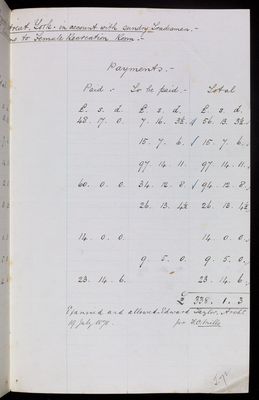 York. in account with Sundry Tradesmen.-
to Female Recreation Room.-
Payments.-
Paid.- To be paid.- Total
£. s. d. £. s. d. £. s. d.
48. 17. 0. 7. 16. 3½ 56. 13. 3½
15. 7. 6. 15. 7. 6.
97. 14. 11. 97. 14. 11.
60. 0. 0. 34. 12. 8. 94. 12. 8.
26. 13. 4½ 26. 13. 4½
14. 0. 0. 14. 0. 0.
9. 5. 0. 9. 5. 0.
23. 14. 6. 23. 14. 6.
£ 338. 1. 3
Examined and allowed. Edward Taylor, Archt
19 July 1870. for